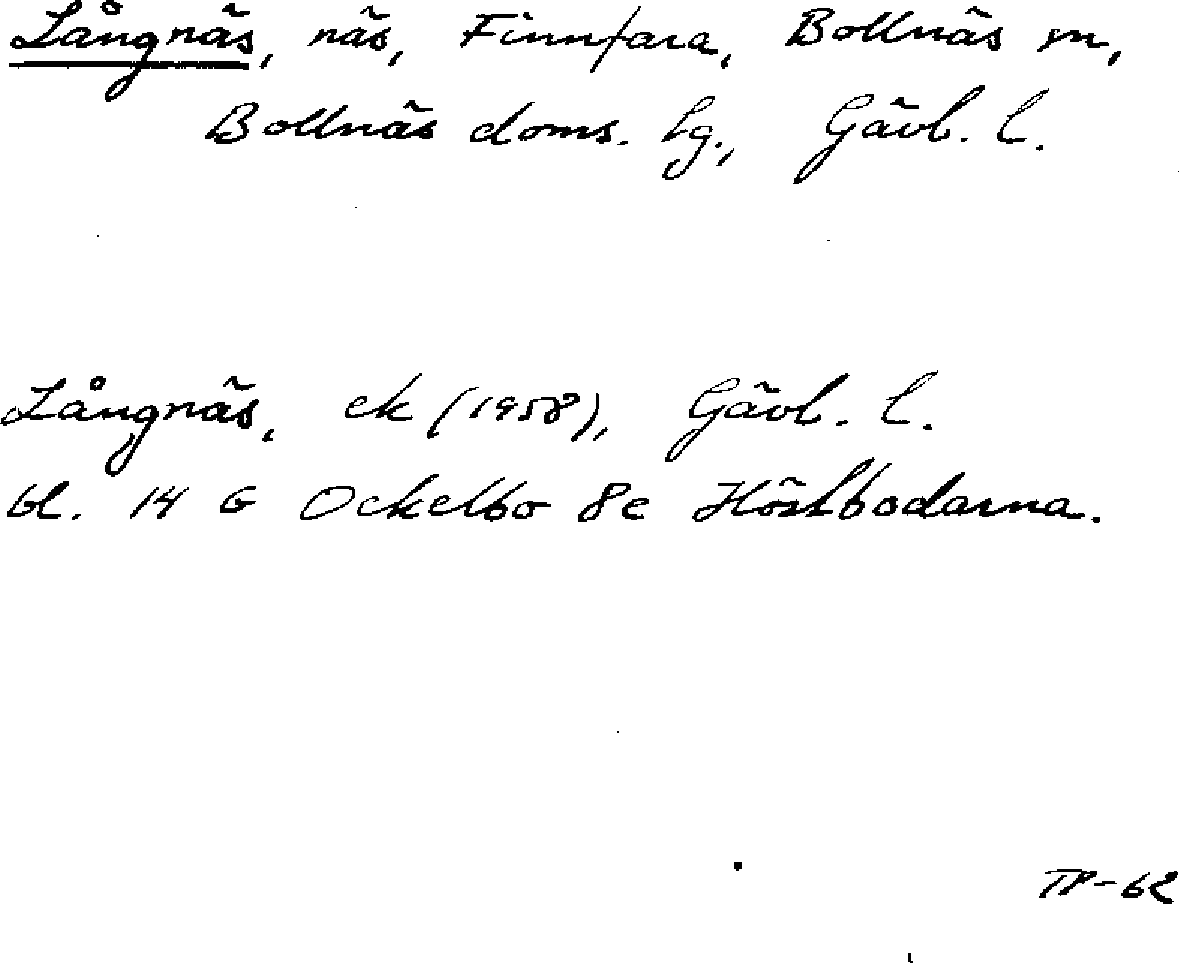 Långnäs, näs, Finnfara, Bollnäs sn,
Bollnäs doms. hg., Gävl. l.
Långnäs, ek (1958), Gävl. l.
bl. 14 G Ockelbo 8e Höstbodarna.
TP-62